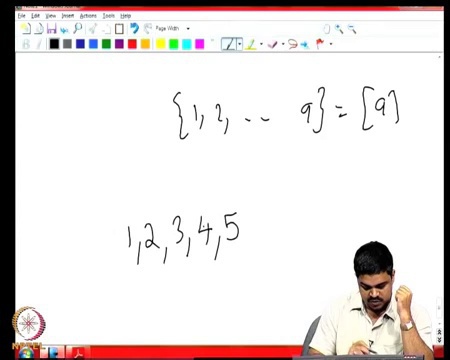 File Edit View Insert Actions Tools Help
Page Width
B
{1, 2, .. 9} = [9]
1, 2, 3, 4, 5